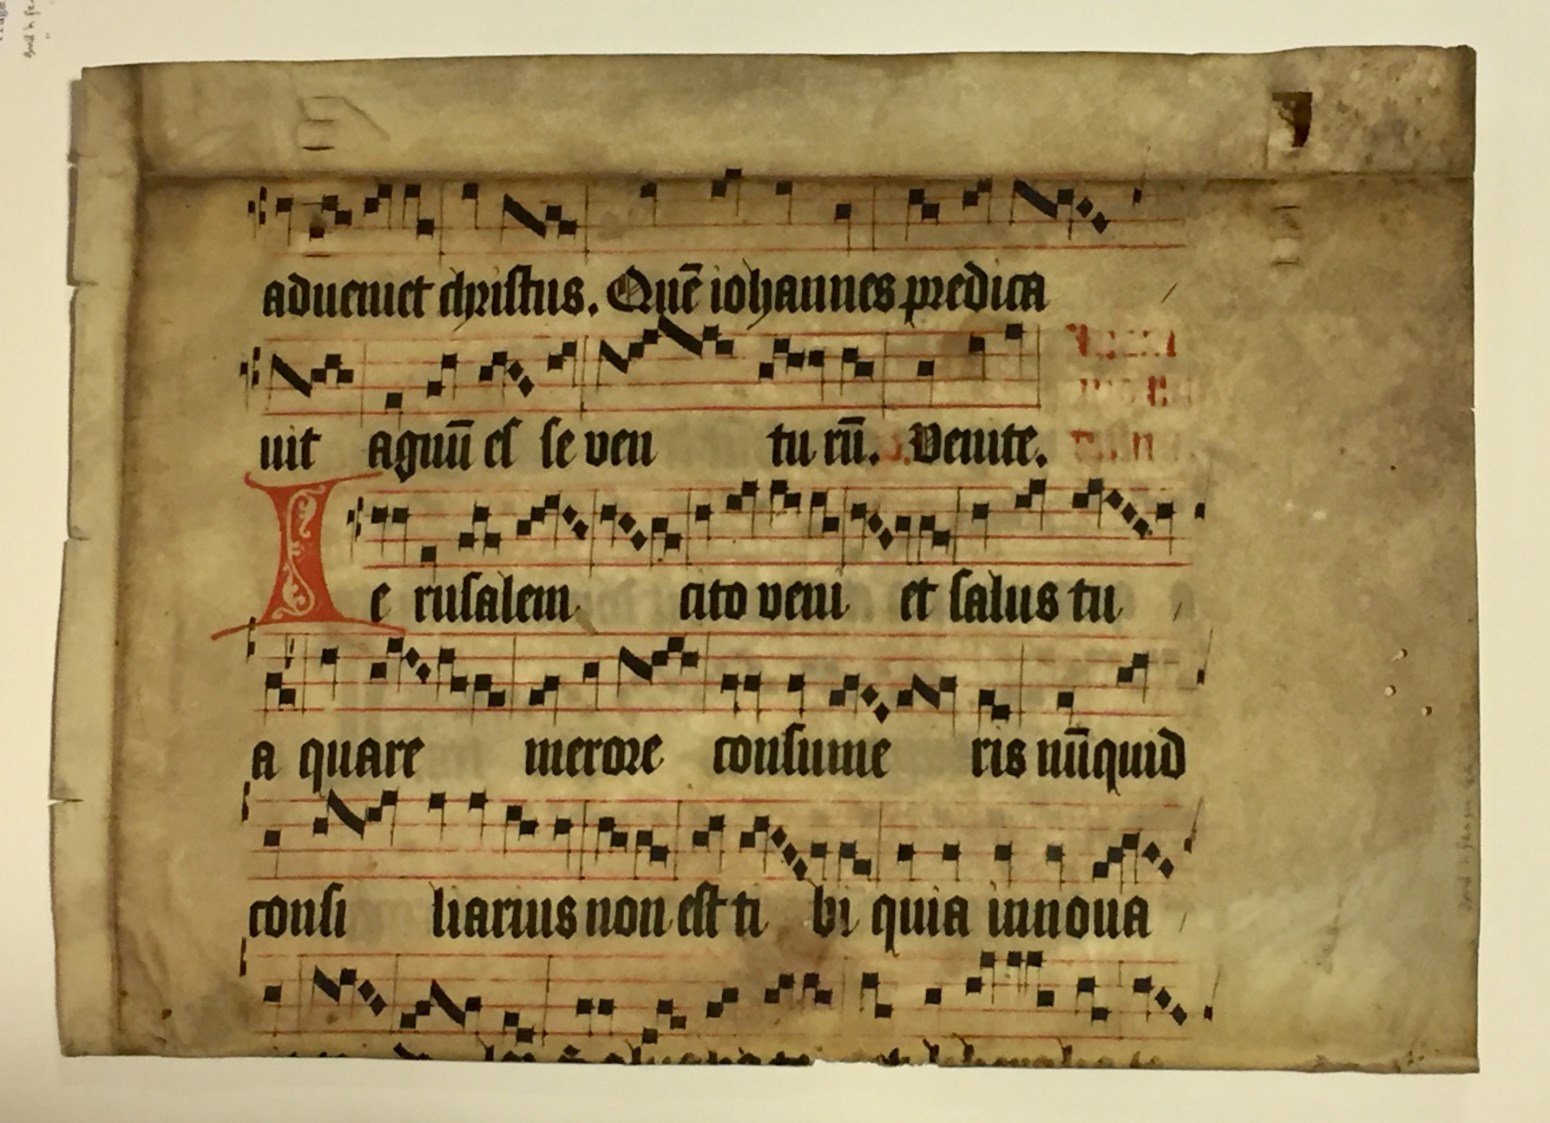 adueniet christus. Quē iohannes predica
uit agnū eſ ſe ven tu rū. Venite.
Ie ruſalem cito veni et ſalus tu
a quare merore conſume ris nūquid
conſi liarius non eſt ti bi quia innoua